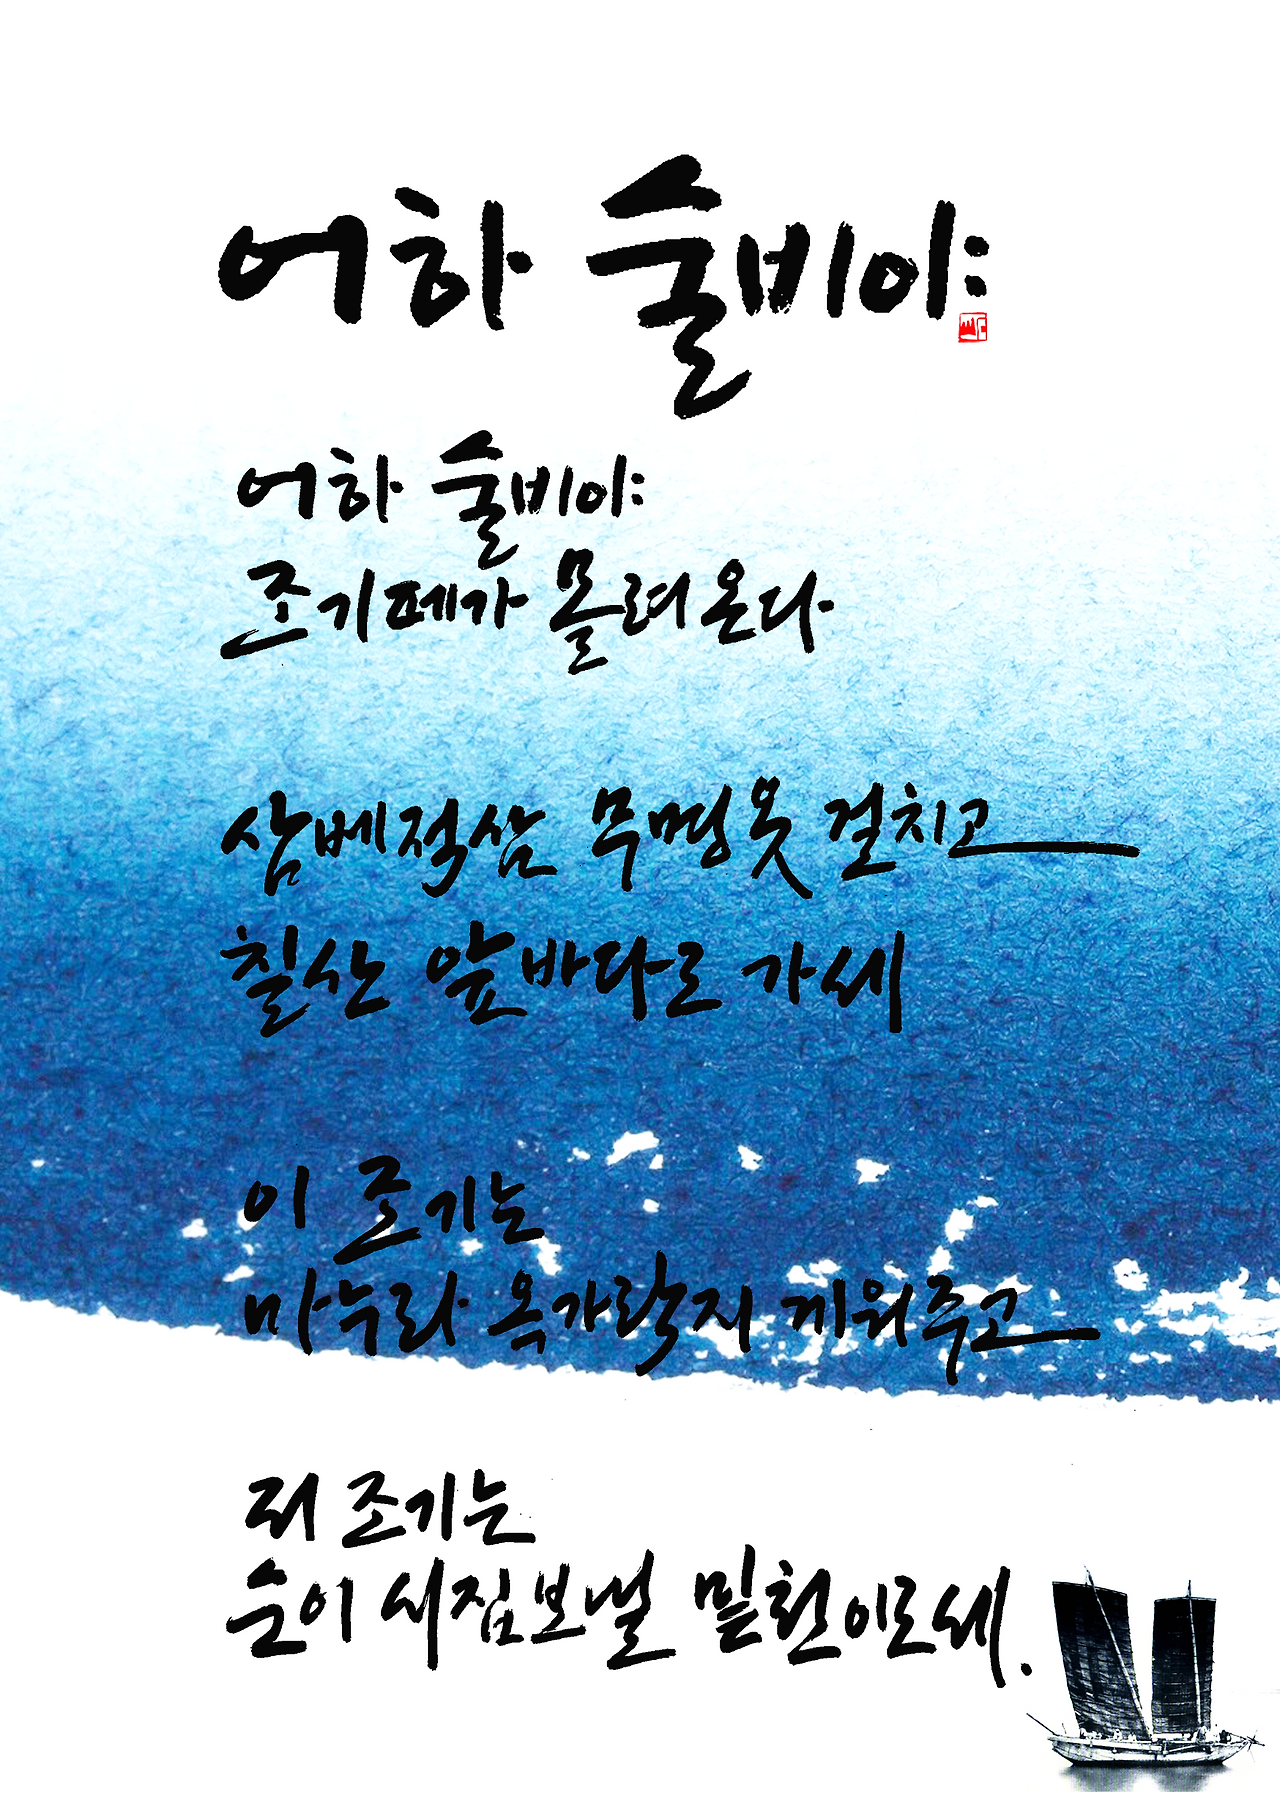 어하 술비야
어하 술비야
조기떼가 몰려온다
삼베적삼 무명옷 걸치고
칠산 앞바다로 가세
이 조기는
마누라 옥가락지 끼워주고
조기는
순이 시집보낼 밑천이로세.